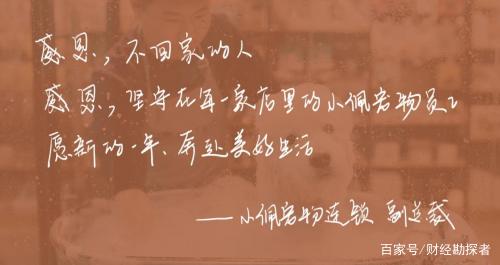 感恩，不回家的人
感恩，坚守在每一家店里的小佩宠物员工
愿新的一年、奔赴美好生活
——小佩宠物连锁 副总裁
百家号/财经勘探者